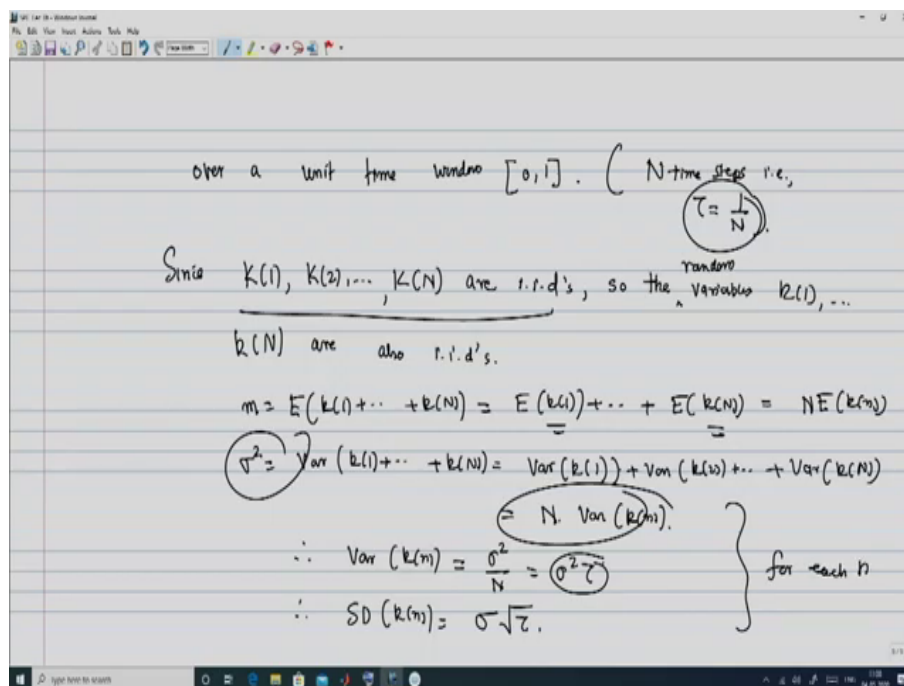 File Edit View Insert Actions Tools Help
Page Width
over a unit time window [0,1]. ( N-time steps i.e.,
τ = 1/N ).
Since K(1), K(2),..., K(N) are i.i.d's, so the random variables k(1), ...
k(N) are also i.i.d's.
m = E(k(1)+ .. +k(N)) = E(k(1))+ .. + E(k(N)) = NE(k(n))
σ² = Var (k(1)+ .. +k(N)) = Var (k(1)) + Var (k(2))+ .. + Var(k(N))
= N. Var (k(n)).
∴ Var (k(n)) = σ²/N = σ²τ } for each n
∴ SD (k(n)) = σ√τ.
Type here to search